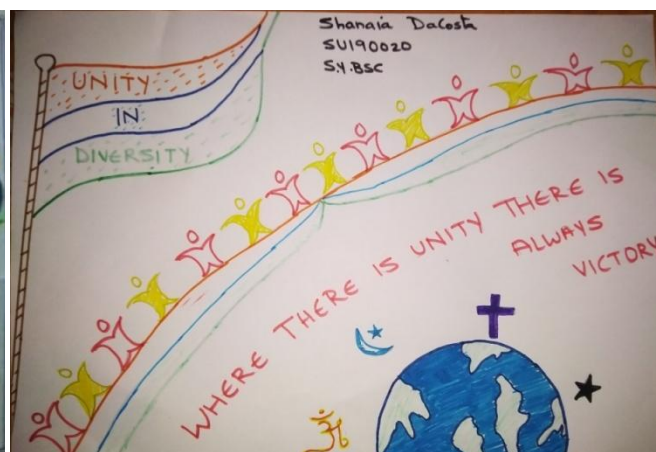 Shanaia DaCosta
SU190020
S.Y.BSC
UNITY
IN
DIVERSITY
WHERE THERE IS UNITY THERE IS
ALWAYS
VICTORY
ॐ